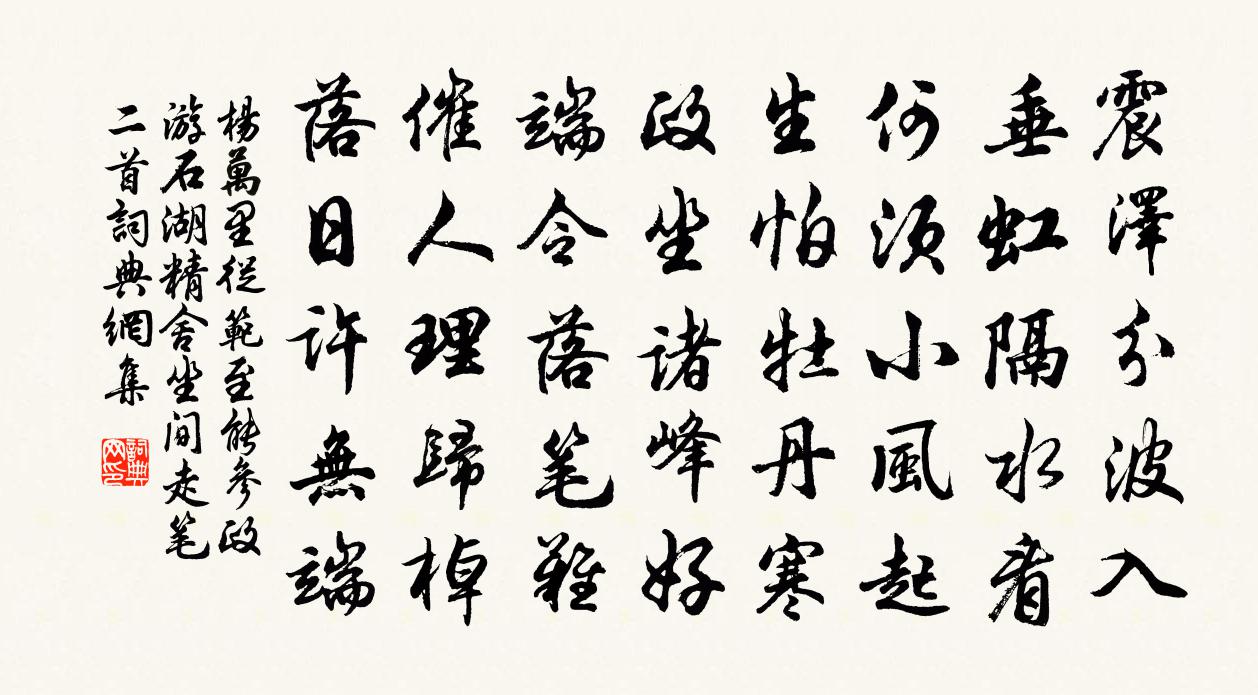 震澤分波入
垂虹隔水看
何須小風起
生怕牡丹寒
政坐諸峰好
端令落笔難
催人理歸棹
落日許無端
楊萬里從範至能參政
游石湖精舍坐间走笔
二首詞典網集
詞典网印